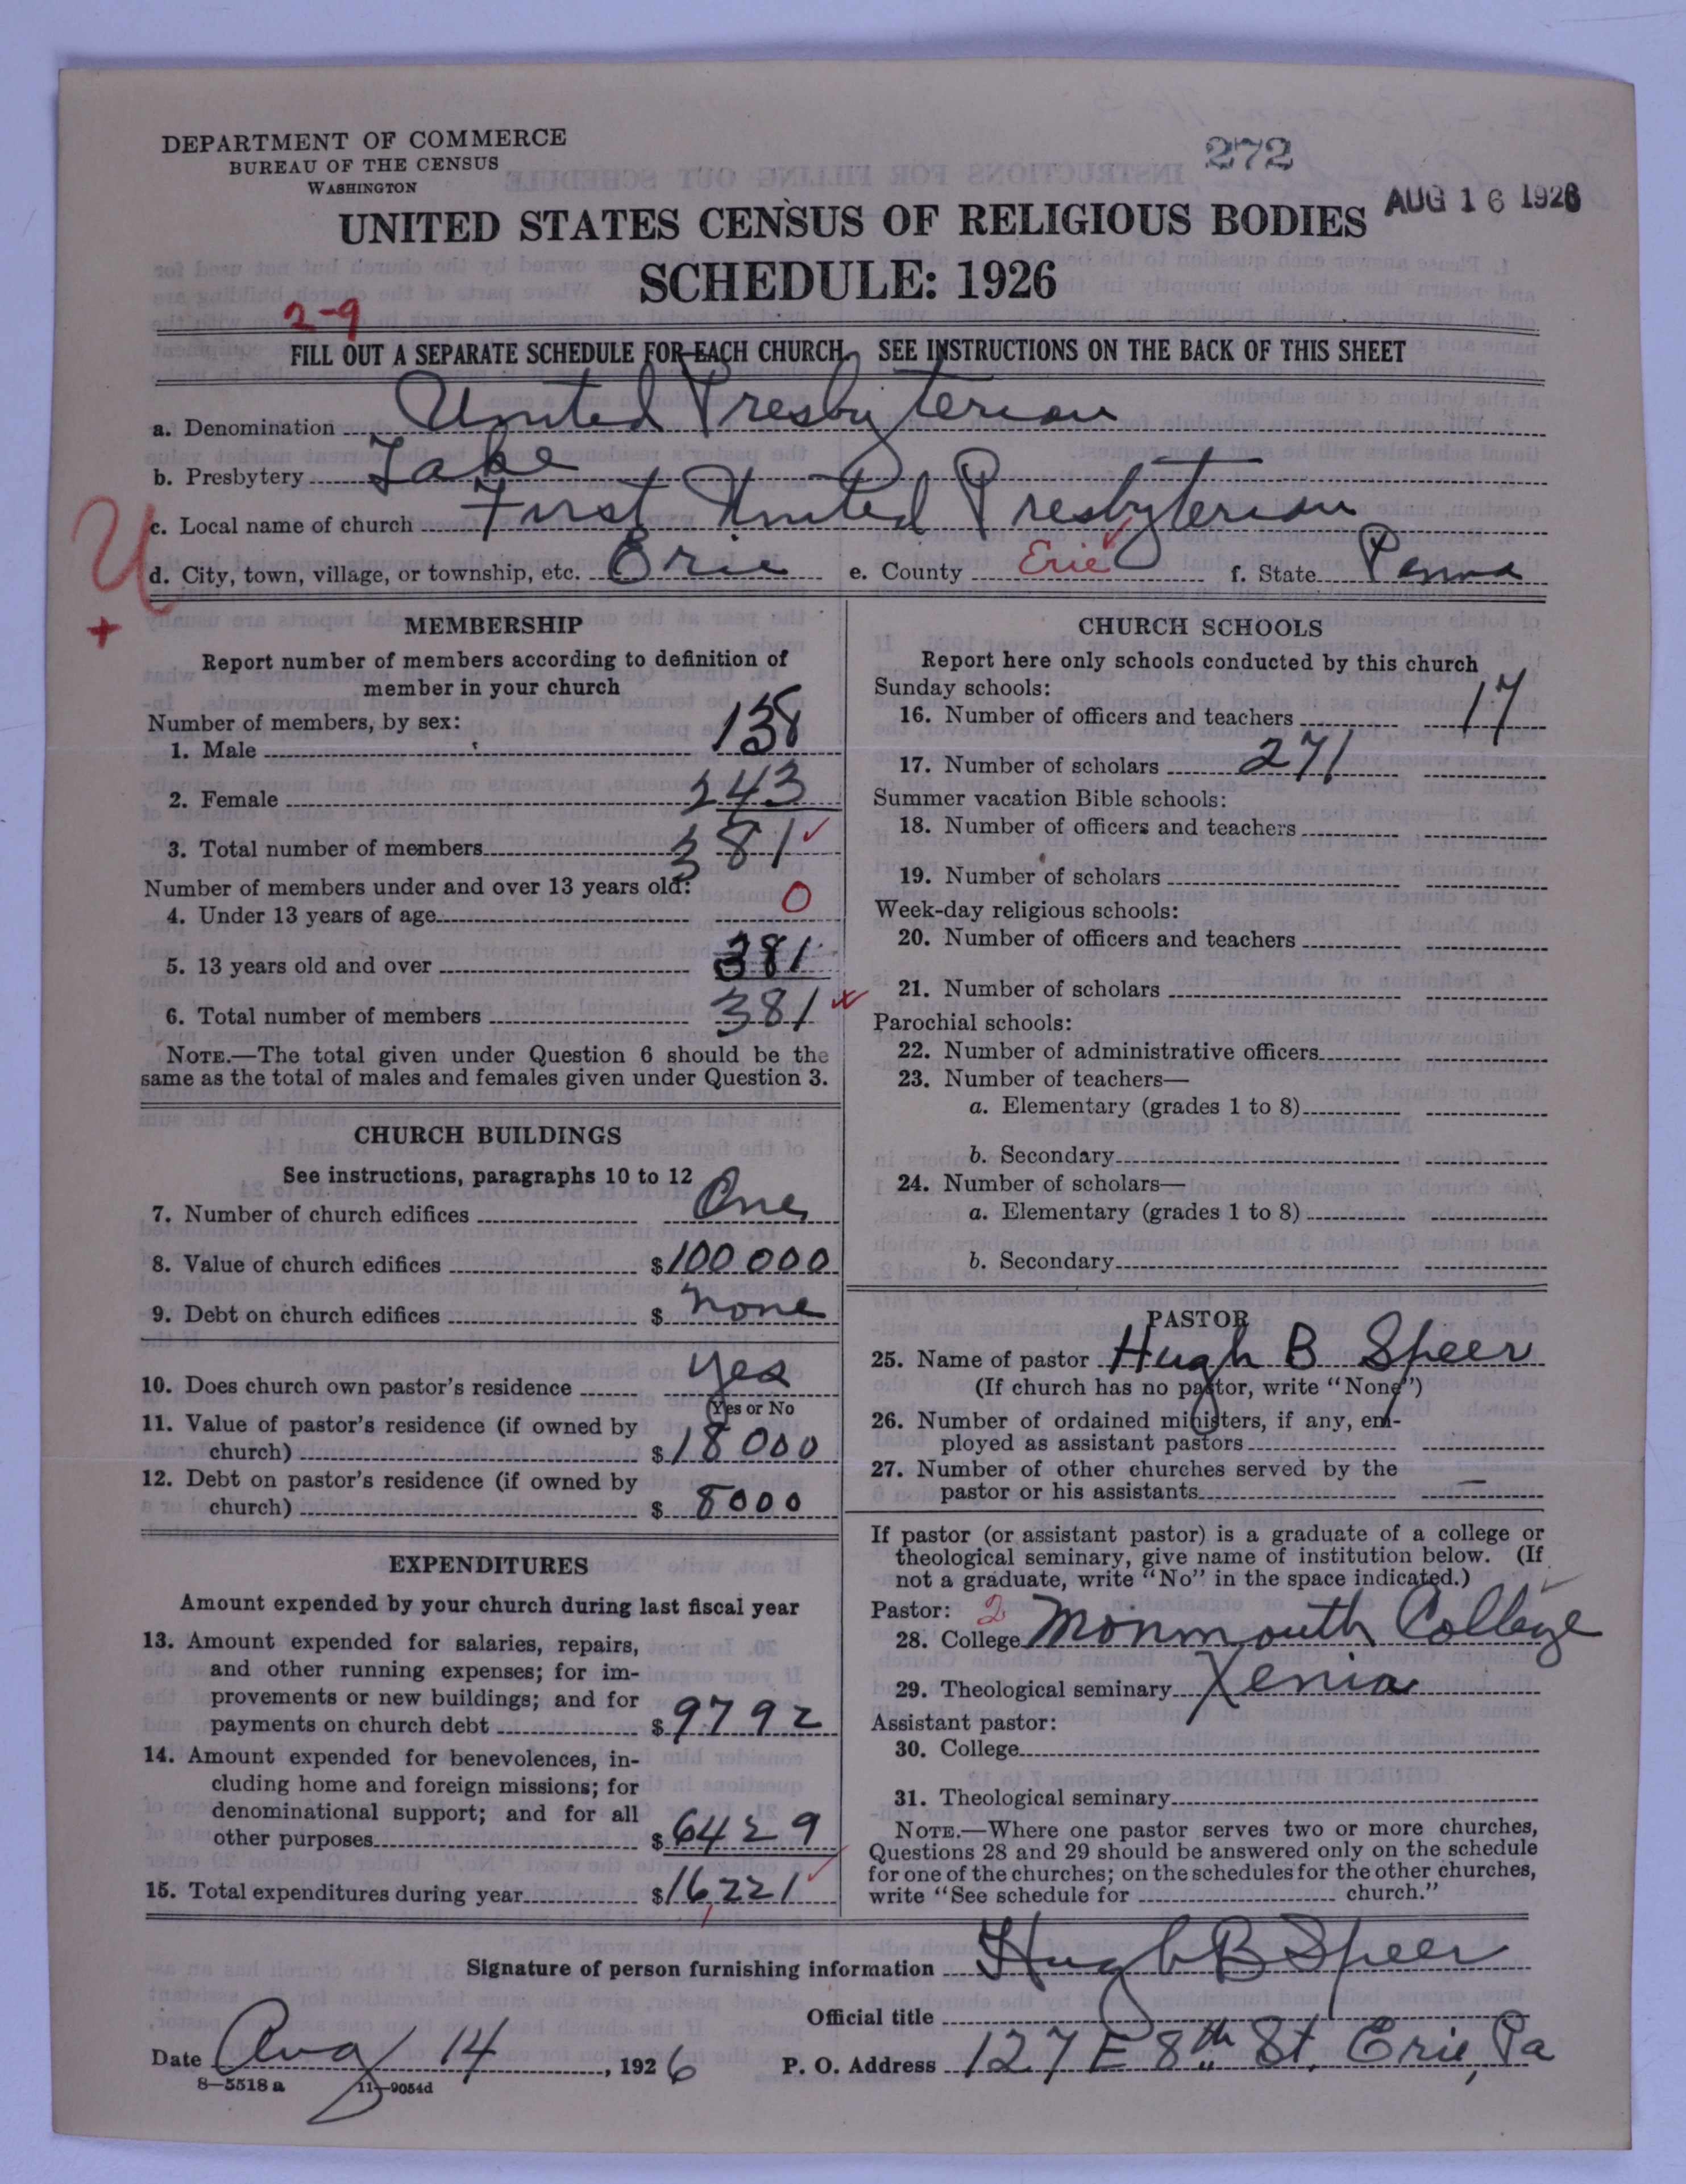 DEPARTMENT OF COMMERCE
BUREAU OF THE CENSUS
WASHINGTON
272
AUG 16 1926
UNITED STATES CENSUS OF RELIGIOUS BODIES
SCHEDULE: 1926
2-9
FILL OUT A SEPARATE SCHEDULE FOR EACH CHURCH. SEE INSTRUCTIONS ON THE BACK OF THIS SHEET
a. Denomination United Presbyterian
b. Presbytery Lake
c. Local name of church First United Presbyterian
d. City, town, village, or township, etc. Erie e. County Erie f. State Penna
U
+
MEMBERSHIP
Report number of members according to definition of
member in your church
Number of members, by sex:
1. Male 138
2. Female 243
3. Total number of members 381
Number of members under and over 13 years old:
4. Under 13 years of age 0
5. 13 years old and over 381
6. Total number of members 381
NOTE.—The total given under Question 6 should be the
same as the total of males and females given under Question 3.
CHURCH BUILDINGS
See instructions, paragraphs 10 to 12
7. Number of church edifices One
8. Value of church edifices $100000
9. Debt on church edifices $ none
10. Does church own pastor's residence yes
(Yes or No
11. Value of pastor's residence (if owned by
church) $18000
12. Debt on pastor's residence (if owned by
church) $ 8000
EXPENDITURES
Amount expended by your church during last fiscal year
13. Amount expended for salaries, repairs,
and other running expenses; for im-
provements or new buildings; and for
payments on church debt $9792
14. Amount expended for benevolences, in-
cluding home and foreign missions; for
denominational support; and for all
other purposes $6429
15. Total expenditures during year $16,221
CHURCH SCHOOLS
Report here only schools conducted by this church
Sunday schools:
16. Number of officers and teachers 17
17. Number of scholars 271
Summer vacation Bible schools:
18. Number of officers and teachers
19. Number of scholars
Week-day religious schools:
20. Number of officers and teachers
21. Number of scholars
Parochial schools:
22. Number of administrative officers
23. Number of teachers—
a. Elementary (grades 1 to 8)
b. Secondary
24. Number of scholars—
a. Elementary (grades 1 to 8)
b. Secondary
PASTOR
25. Name of pastor Hugh B Speer
(If church has no pastor, write "None")
26. Number of ordained ministers, if any, em-
ployed as assistant pastors
27. Number of other churches served by the
pastor or his assistants —
If pastor (or assistant pastor) is a graduate of a college or
theological seminary, give name of institution below. (If
not a graduate, write "No" in the space indicated.)
Pastor: 2
28. College Monmouth College
29. Theological seminary Xenia
Assistant pastor:
30. College
31. Theological seminary
NOTE.—Where one pastor serves two or more churches,
Questions 28 and 29 should be answered only on the schedule
for one of the churches; on the schedules for the other churches,
write "See schedule for church."
Signature of person furnishing information Hugh B Speer
Official title
Date Aug 14, 1926 P. O. Address 127 E 8th St. Erie, Pa
8—5518a 11—9054d